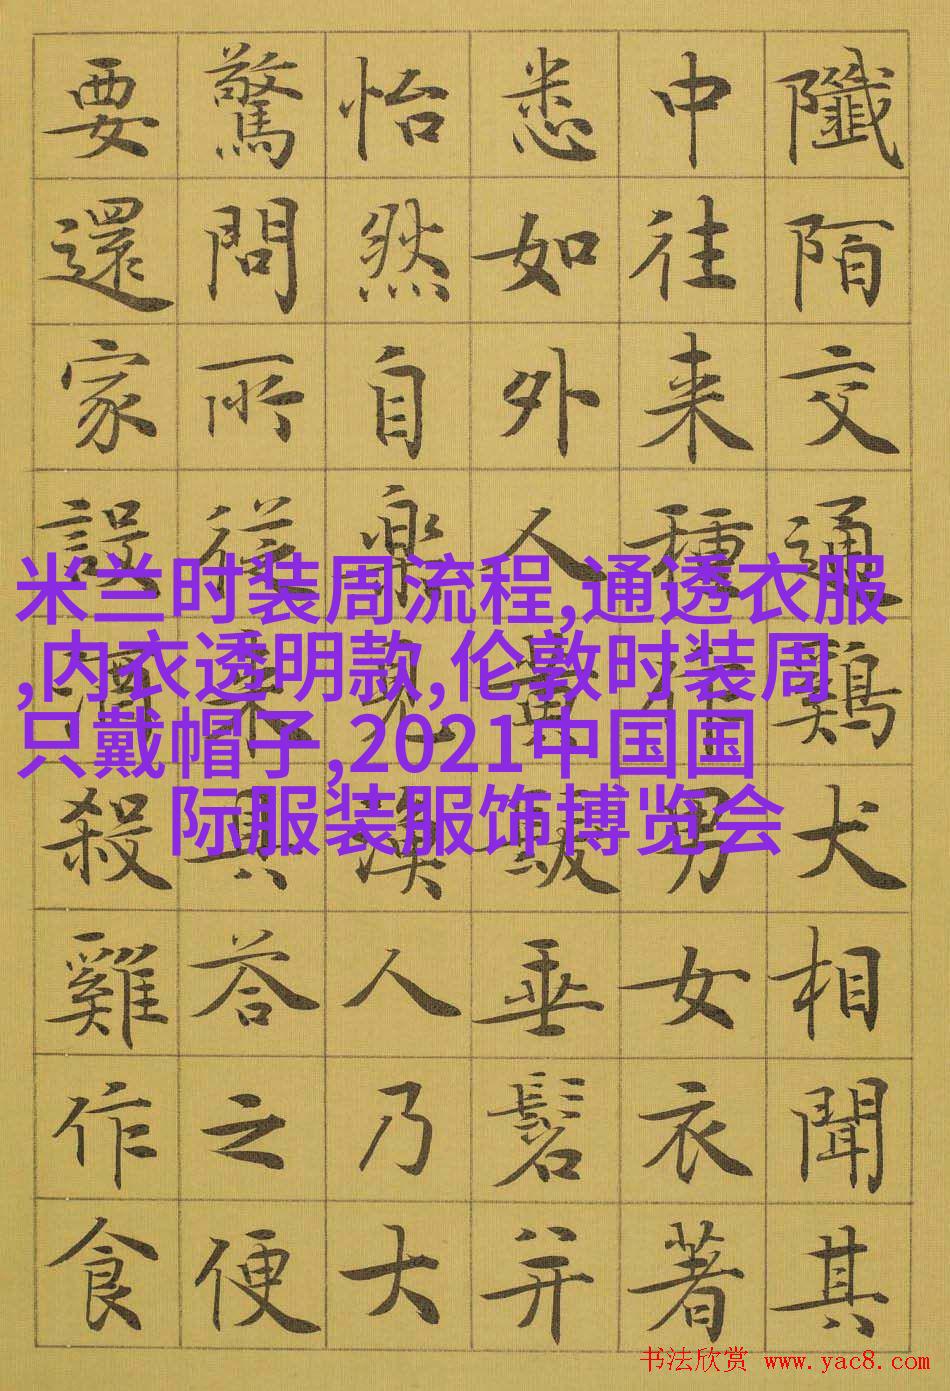 陌交通鷄犬相聞其
中往来種作男女衣著
悉如外人黃髮垂髫并
怡然自樂見漁人乃大
驚問所從来具答之便
要還家設酒殺雞作食
米兰时装周流程,通透衣服
,内衣透明款,伦敦时装周
只戴帽子,2021中国国
际服装服饰博览会
书法欣赏 www.yac8.com